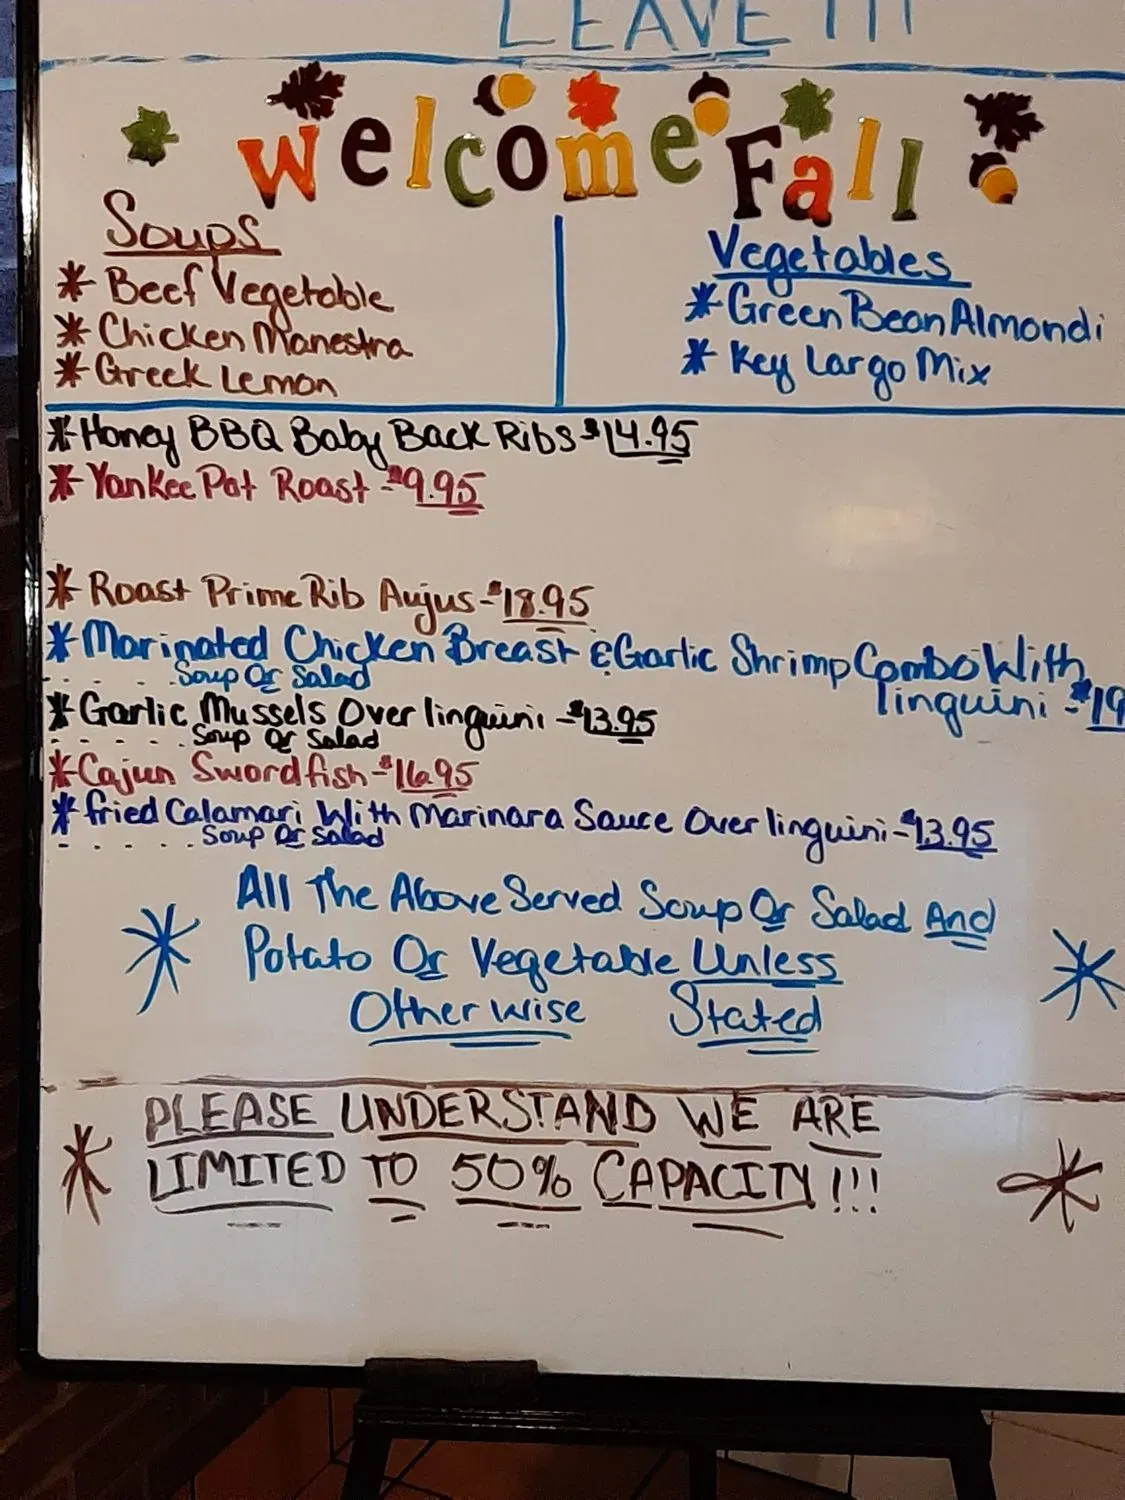 LEAVE !!!
Welcome Fall
Soups
* Beef Vegetable
* Chicken Manestra
* Greek Lemon
Vegetables
* Green Bean Almondi
* Key Largo Mix
* Honey BBQ Baby Back Ribs $14.95
* Yankee Pot Roast - $9.95
* Roast Prime Rib Aujus - $18.95
* Marinated Chicken Breast & Garlic Shrimp Combo With
linguini - $19
Soup Or Salad
* Garlic Mussels Over linguini - $13.95
Soup Or Salad
* Cajun Swordfish - $16.95
* fried Calamari With Marinara Sauce Over linguini - $13.95
Soup Or Salad
All The Above Served Soup Or Salad And
Potato Or Vegetable Unless
Otherwise Stated
PLEASE UNDERSTAND WE ARE
LIMITED TO 50% CAPACITY!!!